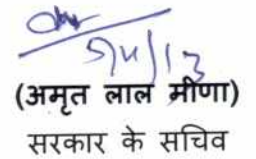 5/4/13
(अमृत लाल मीणा)
सरकार के सचिव